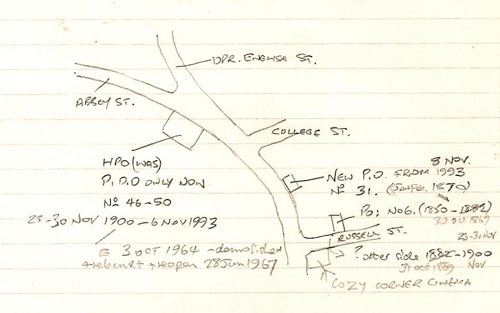 UPR. ENGLISH ST.
ABBEY ST.
COLLEGE ST.
HPO (WAS)
P.D.O ONLY NOW
Nº 46-50
23-30 NOV 1900 - 6 NOV 1993
3 OCT 1964 - demolished
& rebuilt & reopen 28 Jun 1967
8 NOV.
NEW P.O. FROM 1993
Nº 31.
PO; No 6. (1850-1882)
RUSSELL ST.
23-30 NOV
? other side 1882-1900
31 oct 1869 Nov
COZY CORNER CINEMA